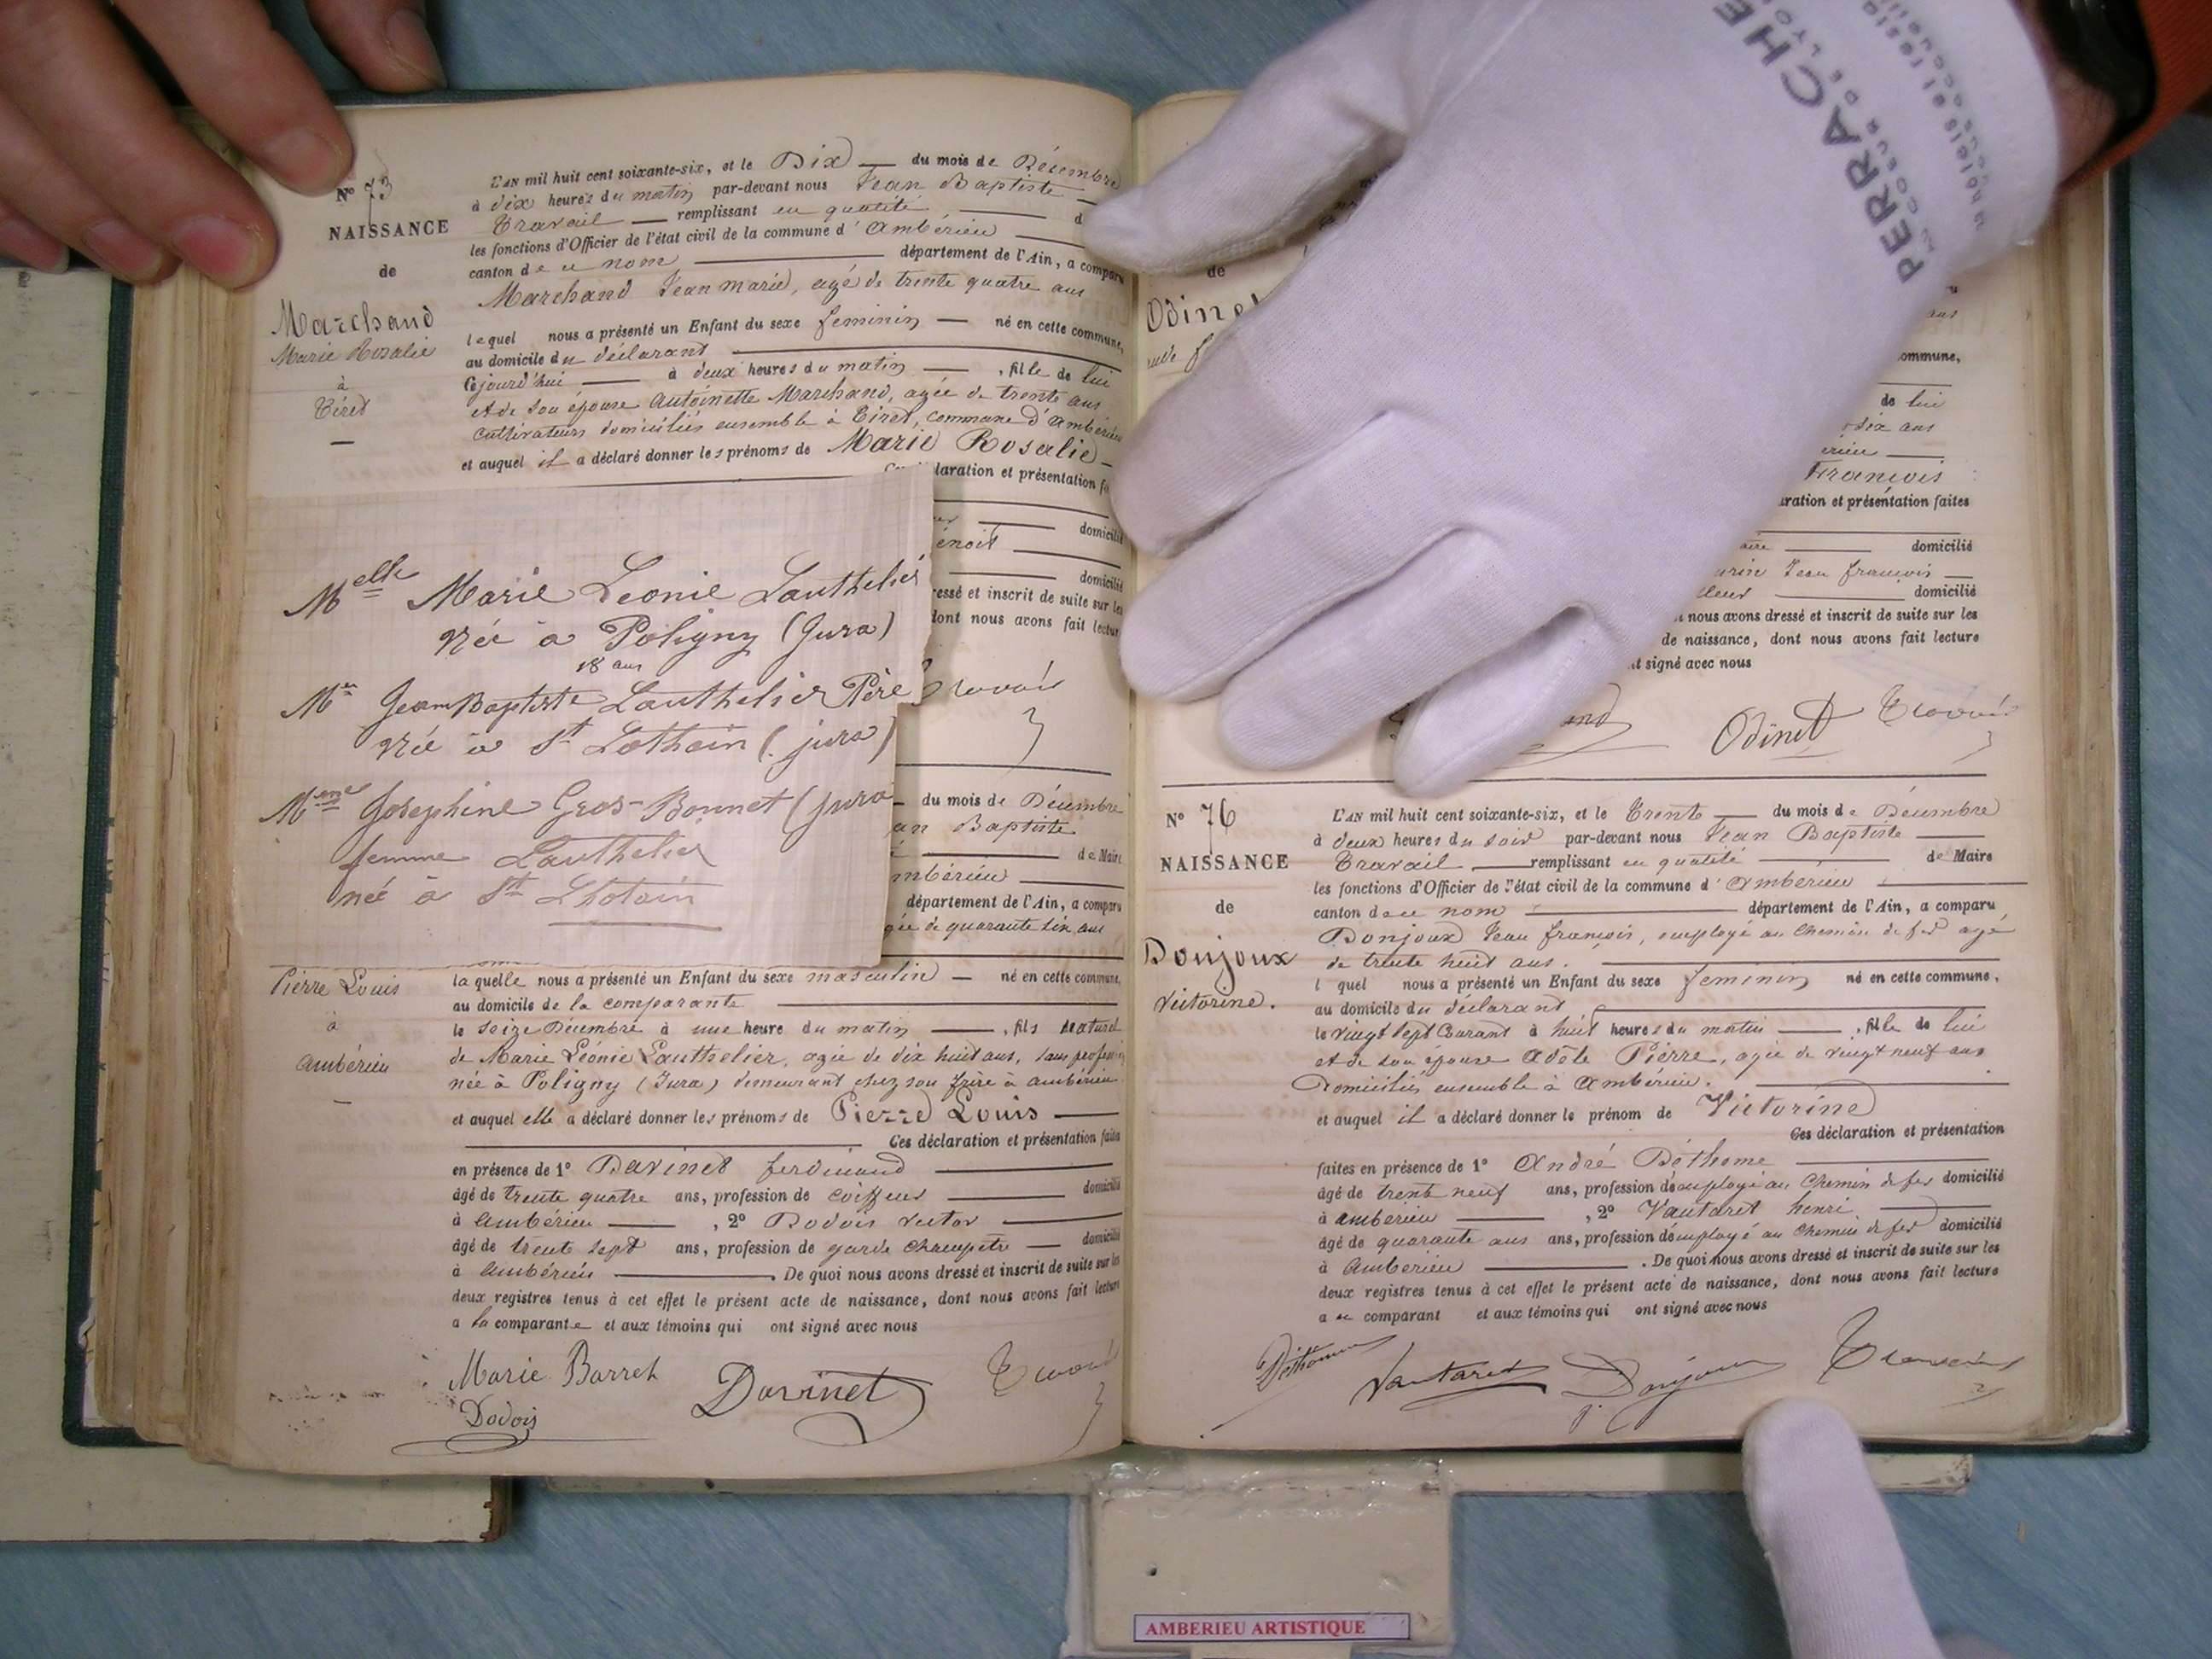 N° 73
NAISSANCE
de
Marchand
Marie Rosalie
à
Tiret
L'AN mil huit cent soixante-six, et le Dix du mois de Décembre
à dix heures du matin par-devant nous Jean Baptiste
Travail remplissant en qualité d
les fonctions d'Officier de l'état civil de la commune d'Ambérieu
canton de ce nom département de l'Ain, a comparu
Marchand Jean marie, agé de trente quatre ans
lequel nous a présenté un Enfant du sexe feminin né en cette commune,
au domicile du déclarant
Cejourd'hui à deux heures du matin, fille de lui
et de son épouse Antoinette Marchand, agée de trente ans
cultivateurs domiciliés ensemble à Tiret, commune d'Ambérieu
et auquel il a déclaré donner les prénoms de Marie Rosalie
laration et présentation
domicilié
enoit
domicilié
ressé et inscrit de suite sur les
dont nous avons fait lecture
Melle Marie Leonie Lauthelier
née à Poligny (Jura)
18 ans
Mr Jean Baptiste Lauthelier Père
née à St Lothain (jura)
Mme Josephine Gros-Bonnet (jura
femme Lauthelier
née à St Lhotain
du mois de Décembre
an Baptiste
de Maire
mbérieu
département de l'Ain, a comparu
gée de quarante six ans
Pierre Louis
à
Ambérieu
laquelle nous a présenté un Enfant du sexe masculin né en cette commune,
au domicile de la comparante
le seize Décembre à une heure du matin, fils naturel
de Marie Léonie Lauthelier, agée de dix huit ans, sans profession
née à Poligny (Jura) demeurant chez son frère à ambérieu
et auquel elle a déclaré donner les prénoms de Pierre Louis
Ces déclaration et présentation faites
en présence de 1° Davinet ferdinand
âgé de trente quatre ans, profession de coiffeur domicilié
à Ambérieu, 2° Dodois victor
âgé de trente sept ans, profession de garde champêtre domicilié
à Ambérieu. De quoi nous avons dressé et inscrit de suite sur les
deux registres tenus à cet effet le présent acte de naissance, dont nous avons fait lecture
a la comparante et aux témoins qui ont signé avec nous
Marie Barret
Davinet
Dodois
de
Odinet
ans
ommune,
de lui
dix ans
érieu
François
aration et présentation faites
domicilié
Jean francois
domicilié
nous avons dressé et inscrit de suite sur les
de naissance, dont nous avons fait lecture
nt signé avec nous
Odinet
N° 76
NAISSANCE
de
Donjoux
Victorine.
L'AN mil huit cent soixante-six, et le Trente du mois de Décembre
à deux heures du soir par-devant nous Jean Baptiste
Travail remplissant en qualité de Maire
les fonctions d'Officier de l'état civil de la commune d'Ambérieu
canton de ce nom département de l'Ain, a comparu
Donjoux Jean françois, employé au chemin de fer agé
de trente huit ans.
l quel nous a présenté un Enfant du sexe feminin né en cette commune,
au domicile du déclarant
le vingt sept Courant à huit heures du matin, fille de lui
et de son épouse Adèle Pierre, agée de vingt neuf ans
Domiciliés ensemble à Ambérieu.
et auquel il a déclaré donner le prénom de Victorine
Ces déclaration et présentation
faites en présence de 1° André Béthome
âgé de trente neuf ans, profession d'employé au Chemin de fer domicilié
à ambérieu, 2° Vautaret henri
âgé de quarante ans ans, profession d'employé au Chemin de fer domicilié
à Ambérieu. De quoi nous avons dressé et inscrit de suite sur les
deux registres tenus à cet effet le présent acte de naissance, dont nous avons fait lecture
a u comparant et aux témoins qui ont signé avec nous
Vautaret
Donjoux
PERRACHE
AMBERIEU ARTISTIQUE